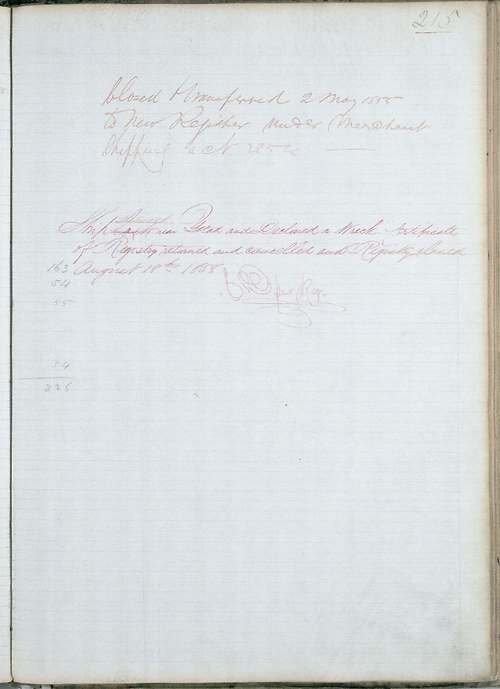 215
Closed & transferred 2 May 1855
to new Register under Merchant
Shipping Act 1854
Ship was and Declared a Wreck. Certificate
of Registry returned and cancelled and Registry closed
August 18th 1858
163
54
55
54
225